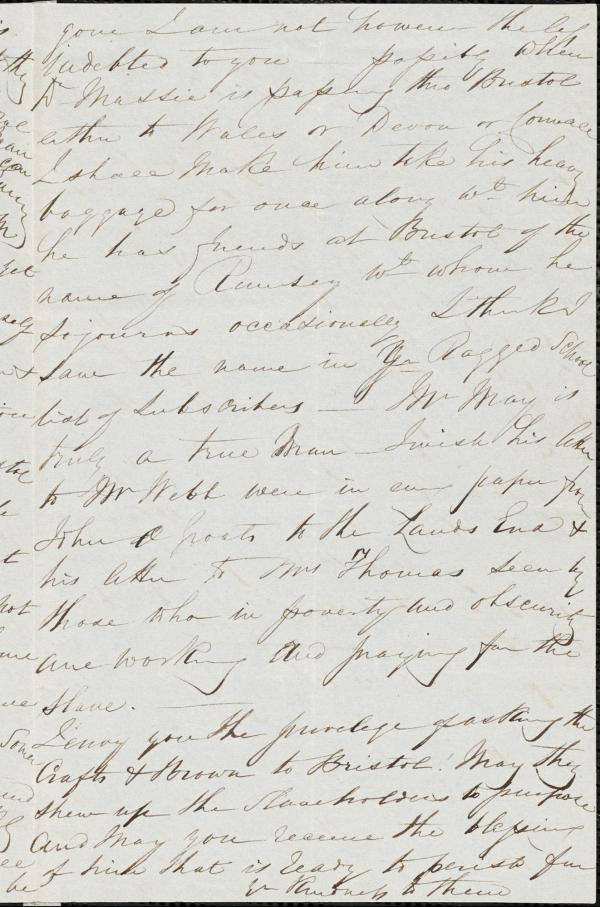 gone I am not however the less
indebted to you — possibly when
Dr Massie is passing thro Bristol
either to Wales or Devon or Cornwall
I shall make him take his heavy
baggage for once along wth him
he has friends at Bristol of the
name of Ramsey wth whom he
sojourns occasionally I think I
saw the name in Yr Ragged School
list of Subscribers — Mr May is
truly a true Man — I wish his letter
to Mr Webb were in every paper from
John O Groats to the Lands End &
his letter to Mrs Thomas seen by
those who in poverty and obscurity
are working and praying for the
Slave. —
I envy you the privilege of asking the
Crafts & Brown to Bristol! May they
shew up the Slaveholders to purpose
and May you receive the blessing
of him that is ready to perish for
yr Kindness to them